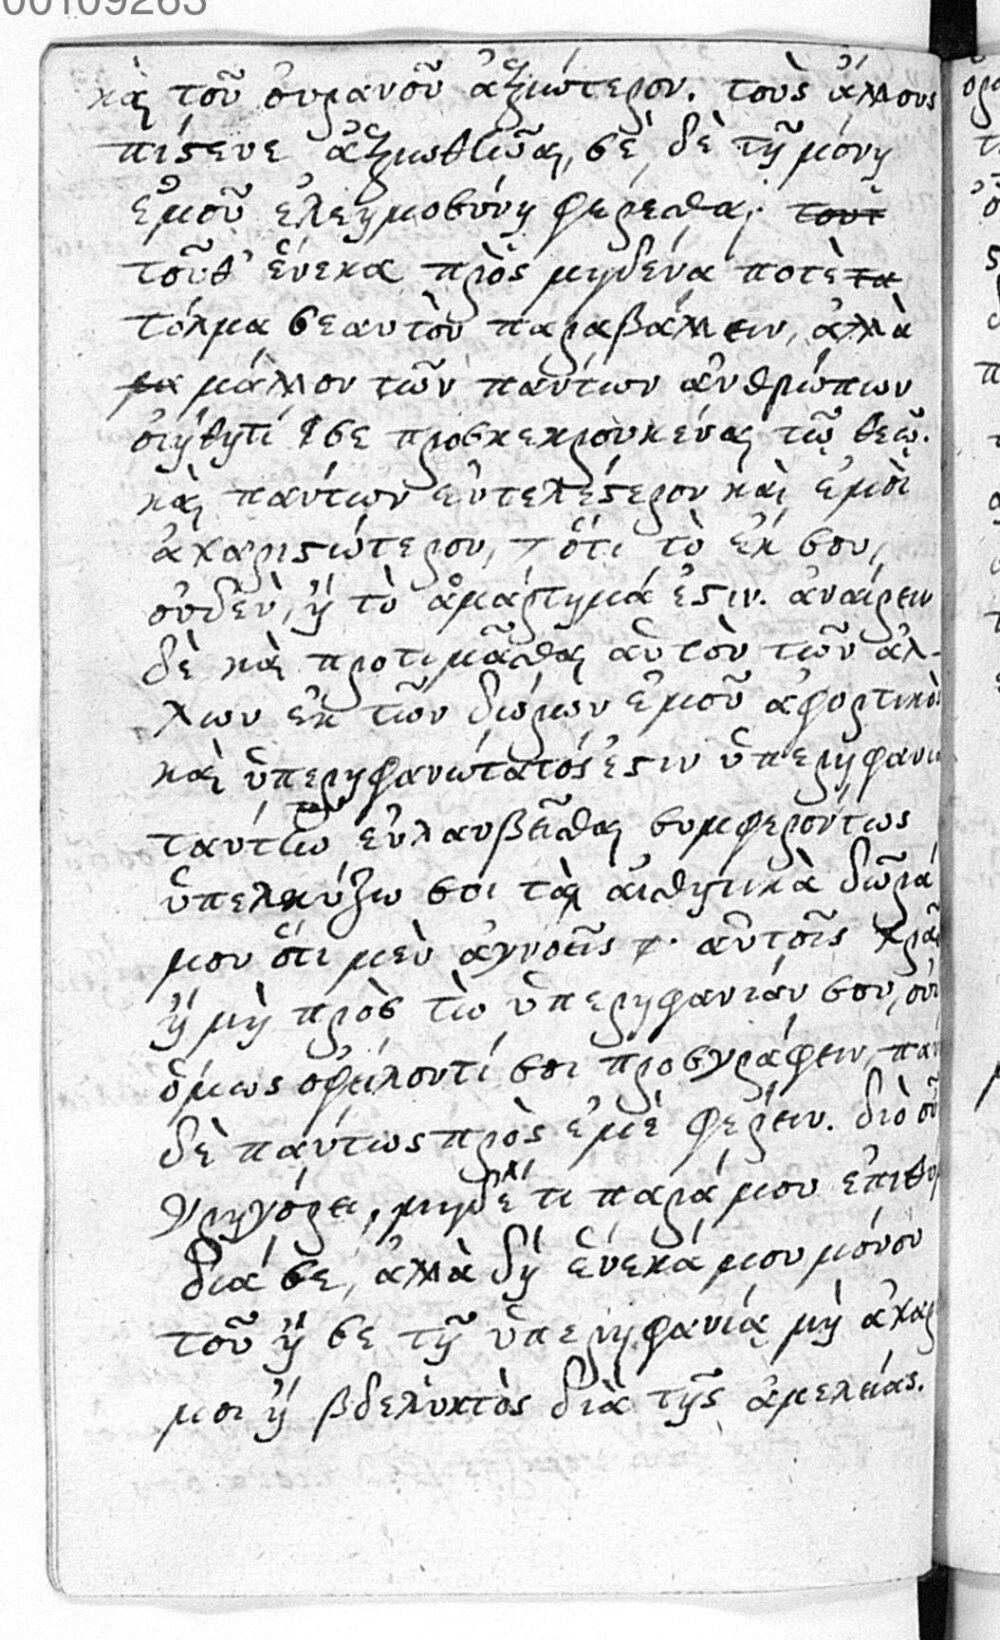 00109263
καὶ τοῦ οὐρανοῦ ἀξιώτερον. τοὺς ἄλλους
πίστευε ἀξιωθῆναι, σὲ δὲ τῇ μόνῃ
ἐμοῦ ἐλεημοσύνῃ φέρεσθαι. τουτ
τοῦθ' ἕνεκα πρὸς μηδένα ποτὲ τα
τόλμα σεαυτὸν παραβάλλειν, ἀλλὰ
μα μάλλον τῶν πάντων ἀνθρώπων
οἰήθητί σε προσκεκρουκέναι τῷ θεῷ.
καὶ πάντων εὐτελέστερον καὶ ἐμοὶ
ἀχαριστώτερον, ὅτι τὸ ἐκ σου,
οὐδὲν, ἢ τὸ ἁμάρτημά ἐστιν. ἀναίρειν
δὲ καὶ προτιμᾶσθαι αὐτὸν τῶν ἄλ-
λων ἐκ τῶν δώρων ἐμοῦ ἀφορτικὸ
καὶ ὑπερηφανώτατός ἐστιν ὑπερηφανι
ταύτην εὐλαυβεῖσθαι συμφερόντως
ὑπελκύζω σοι τὰ αἰσθητικὰ δῶρά
μου ὅτι μὲν ἀγνοεῖς αὐτοῖς χρᾶ
ἢ μὴ πρὸς τὼ ὑπερηφανίαν σου,
ὅμως ὀφείλοντί σοι προσγράφειν, παν
δὲ πάντως πρὸς ἐμὲ φέρειν. διὸ οὖ
γρηγόρει, μηδέ τι παρά μου ἐπιθυ
διά σε, ἀλλὰ δὴ ἕνεκά μου μόνον
τοῦ ἢ σε τῇ ὑπερηφανίᾳ μὴ ἀχαρ
μοι ἢ βδελυκτὸς διὰ τῆς ἀμελείας.